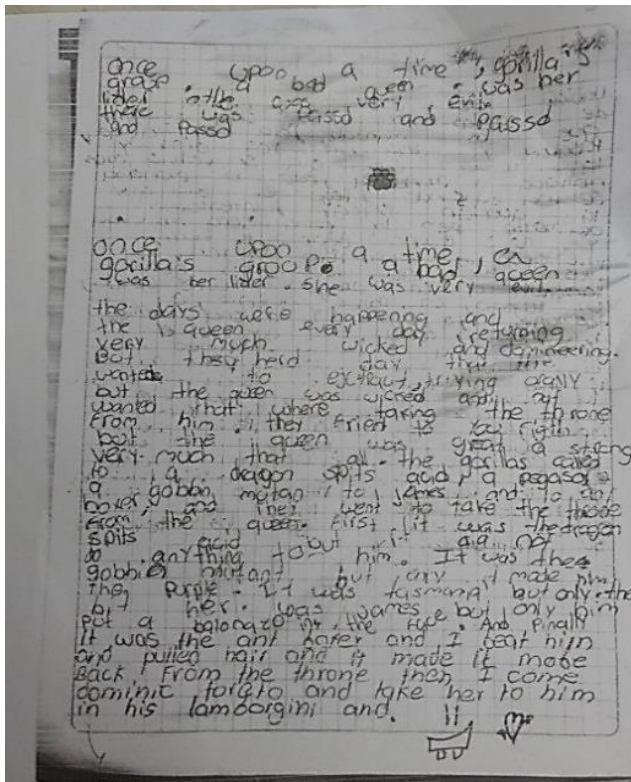 once upon a time, gorilla's
groop. a bad queen. was her
lider in the very evil,
there was passd and passd
and passd
once upon a time, a
gorilla's groop. a bad queen
was her lider. she was very evil.
the days were happening and
the queen every day returning
very much wicked and domineering.
But they herd day that the
wanted to extract, trying any
but the queen was wicked and not
wanted that where taking the throne
From him. they fried to
but the queen was great a strong
very much that all the gorillas called
to a dragon spits acid, a pegasos
a gobbin mutan to james and to ant
boxer, and they went to take the throne
From the queen. First it was the dragon
spits acid but it did not
do anything to him. It was the
gobbin mutant but it made him
the purple. It was tasmania but only the
bit her. was james but only him
put a balonazo in the face. And finally
It was the ant boxer and I beat him
and pullen hair and it made it move
Back From the throne then I come
dominic toreto and take her to him
in his lamborgini and.